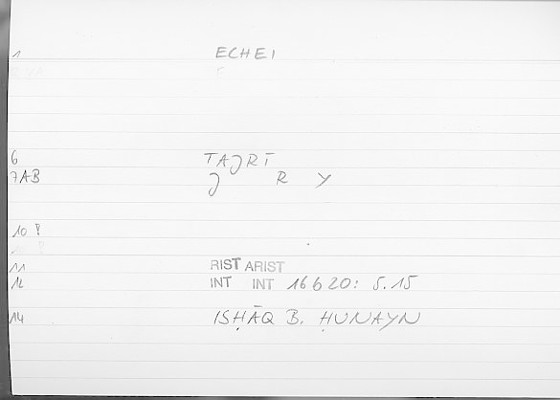 1 ECHEI
6 TAJRĪ
7AB J R Y
10 !
11 RIST ARIST
12 INT INT 16b20: 5.15
14 ISḤĀQ B. ḤUNAYN